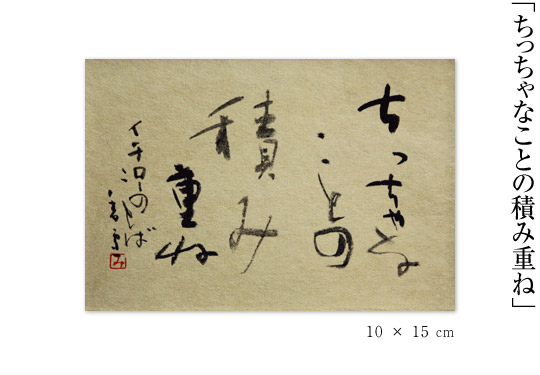 「ちっちゃなことの積み重ね」
ちっちゃな
ことの
積み
重ね
イチローの
ことば
み
10 × 15 cm